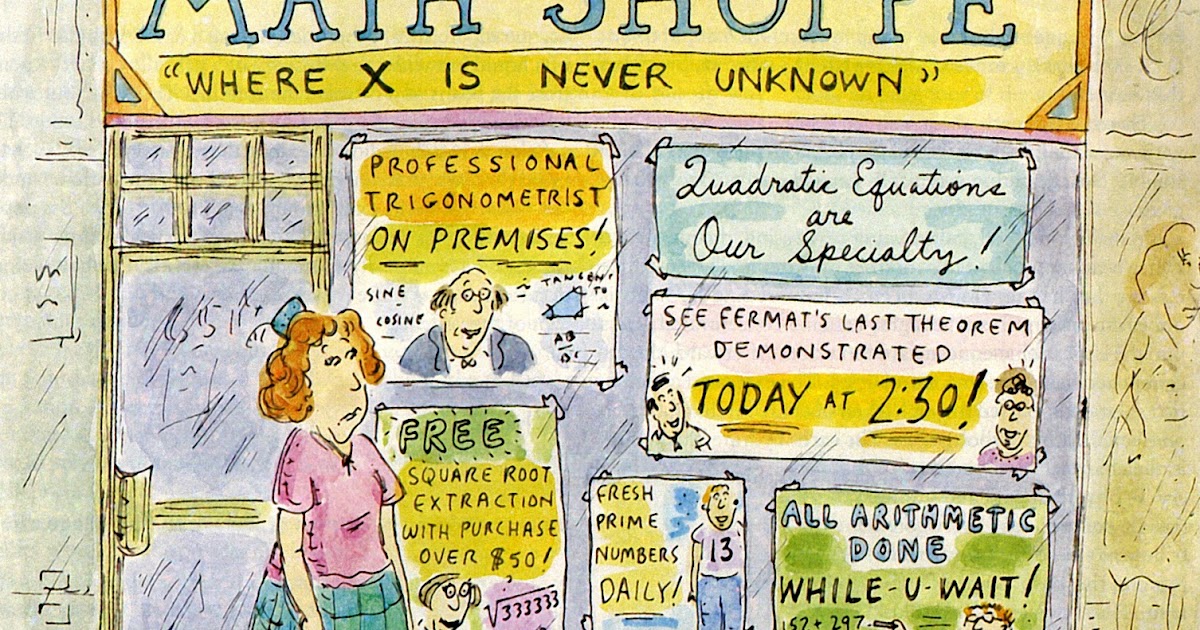 MATH SHOPPE
"WHERE X IS NEVER UNKNOWN"
PROFESSIONAL
TRIGONOMETRIST
ON PREMISES!
SINE
COSINE
TANGENT
TO
AB
Quadratic Equations
are
Our Specialty!
SEE FERMAT'S LAST THEOREM
DEMONSTRATED
TODAY AT 2:30!
FREE
SQUARE ROOT
EXTRACTION
WITH PURCHASE
OVER $50!
√333333
FRESH
PRIME
NUMBERS
DAILY!
13
ALL ARITHMETIC
DONE
WHILE-U-WAIT!
157+297